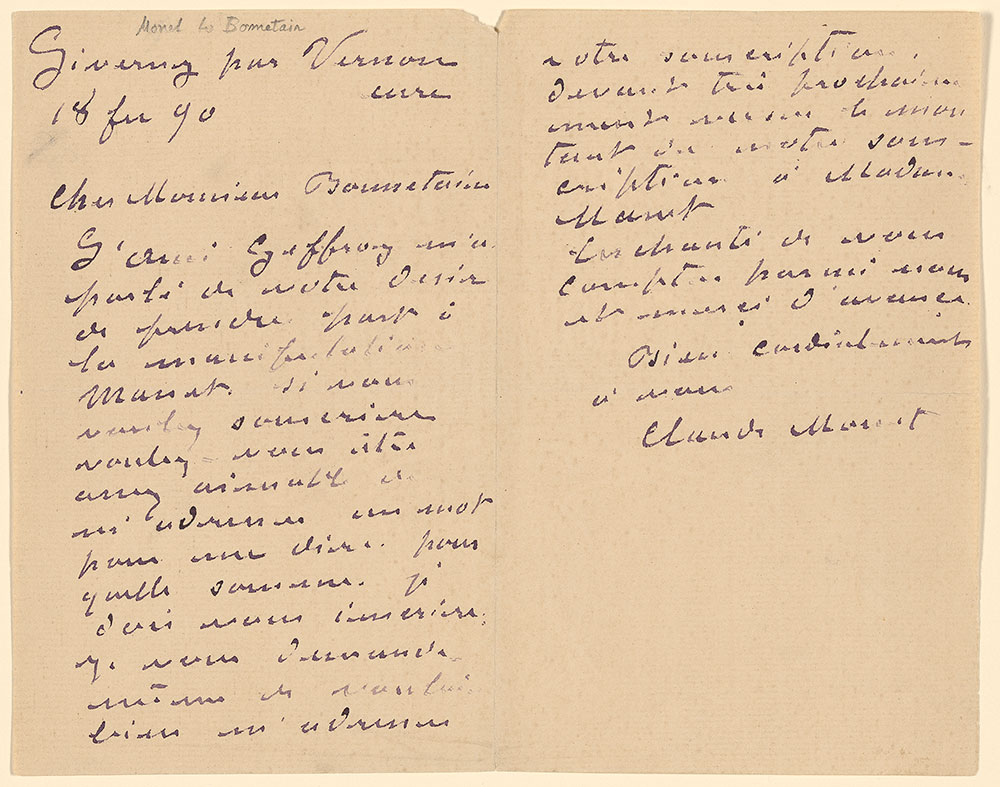 Monet to Bonnetain
Giverny par Vernon
eure
18 fev 90
Cher Monsieur Bonnetain
L'ami Geffroy m'a
parlé de votre désir
de prendre part à
la manifestation
Manet. si vous
voulez souscrire
voulez-vous être
assez aimable de
m'adresser un mot
pour me dire pour
quelle somme je
dois vous inscrire,
je vous demande
même de vouloir
bien m'adresser
votre souscription,
devant très prochaine
ment verser le mon
tant de notre sous-
cription à Madame
Manet
Enchanté de vous
compter parmi nous
et merci d'avance
Bien cordialement
à vous
Claude Monet